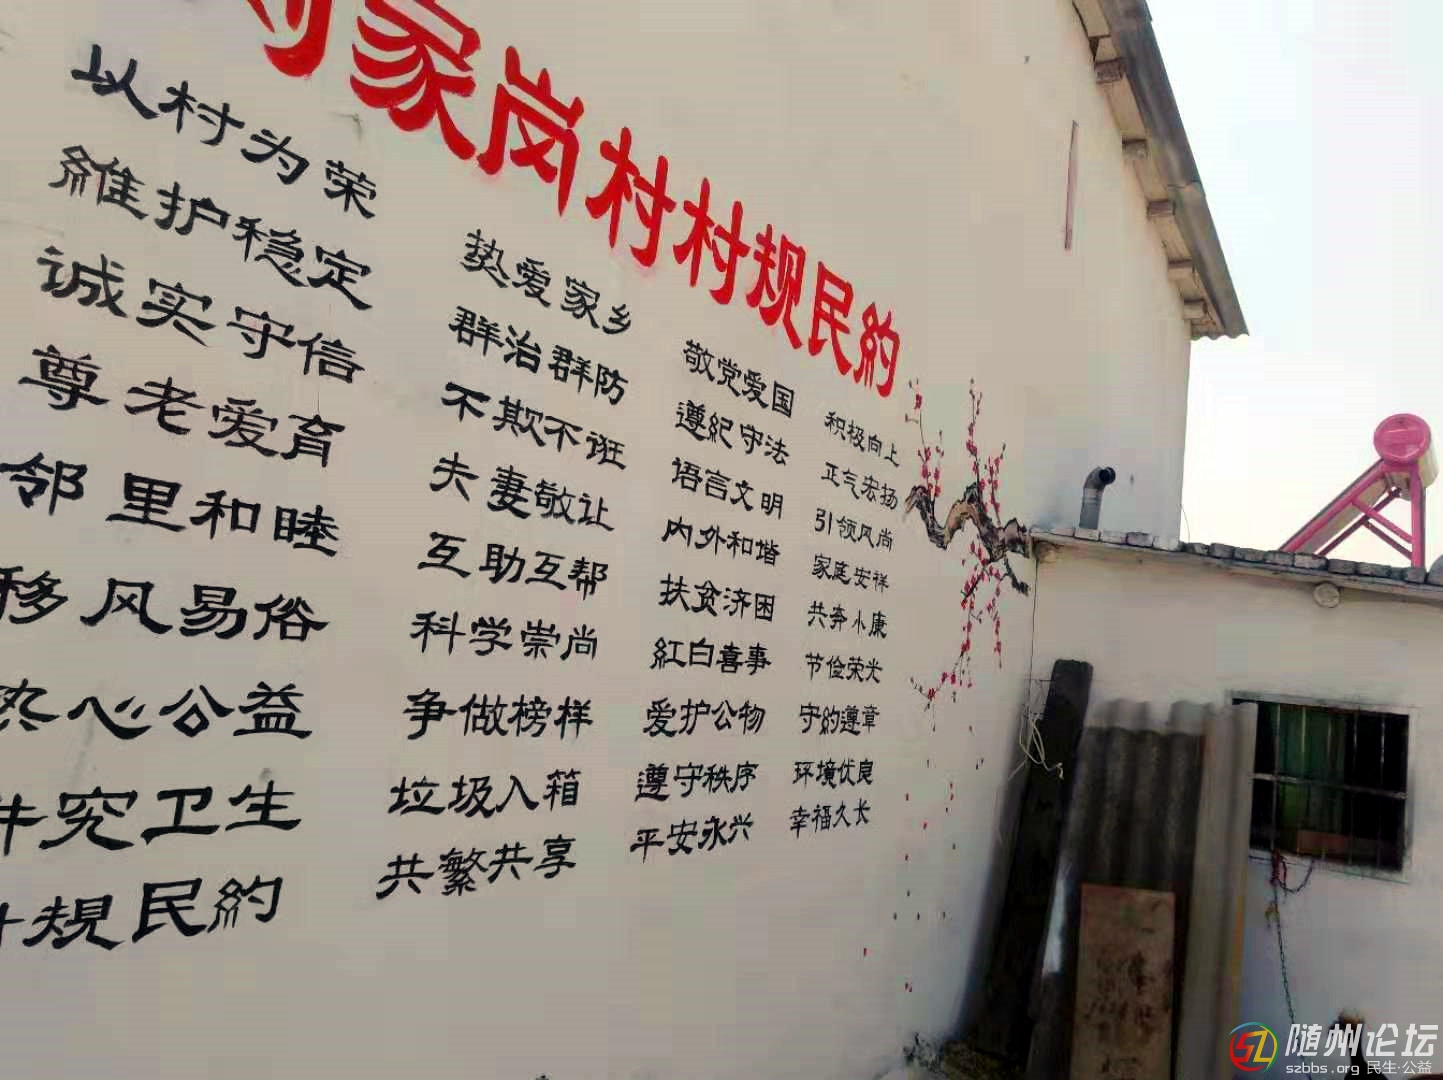 家岗村村规民約
以村为荣 热爱家乡 敬党爱国 积极向上
維护稳定 群治群防 遵紀守法 正气宏扬
诚实守信 不欺不诳 语言文明 引领风尚
尊老爱育 夫妻敬让 内外和谐 家庭安祥
邻里和睦 互助互帮 扶贫济困 共奔小康
移风易俗 科学崇尚 紅白喜事 节俭荣光
热心公益 争做榜样 爱护公物 守約遵章
讲究卫生 垃圾入箱 遵守秩序 环境优良
村規民約 共繁共享 平安永兴 幸福久长
随州论坛
szbbs.org 民生·公益